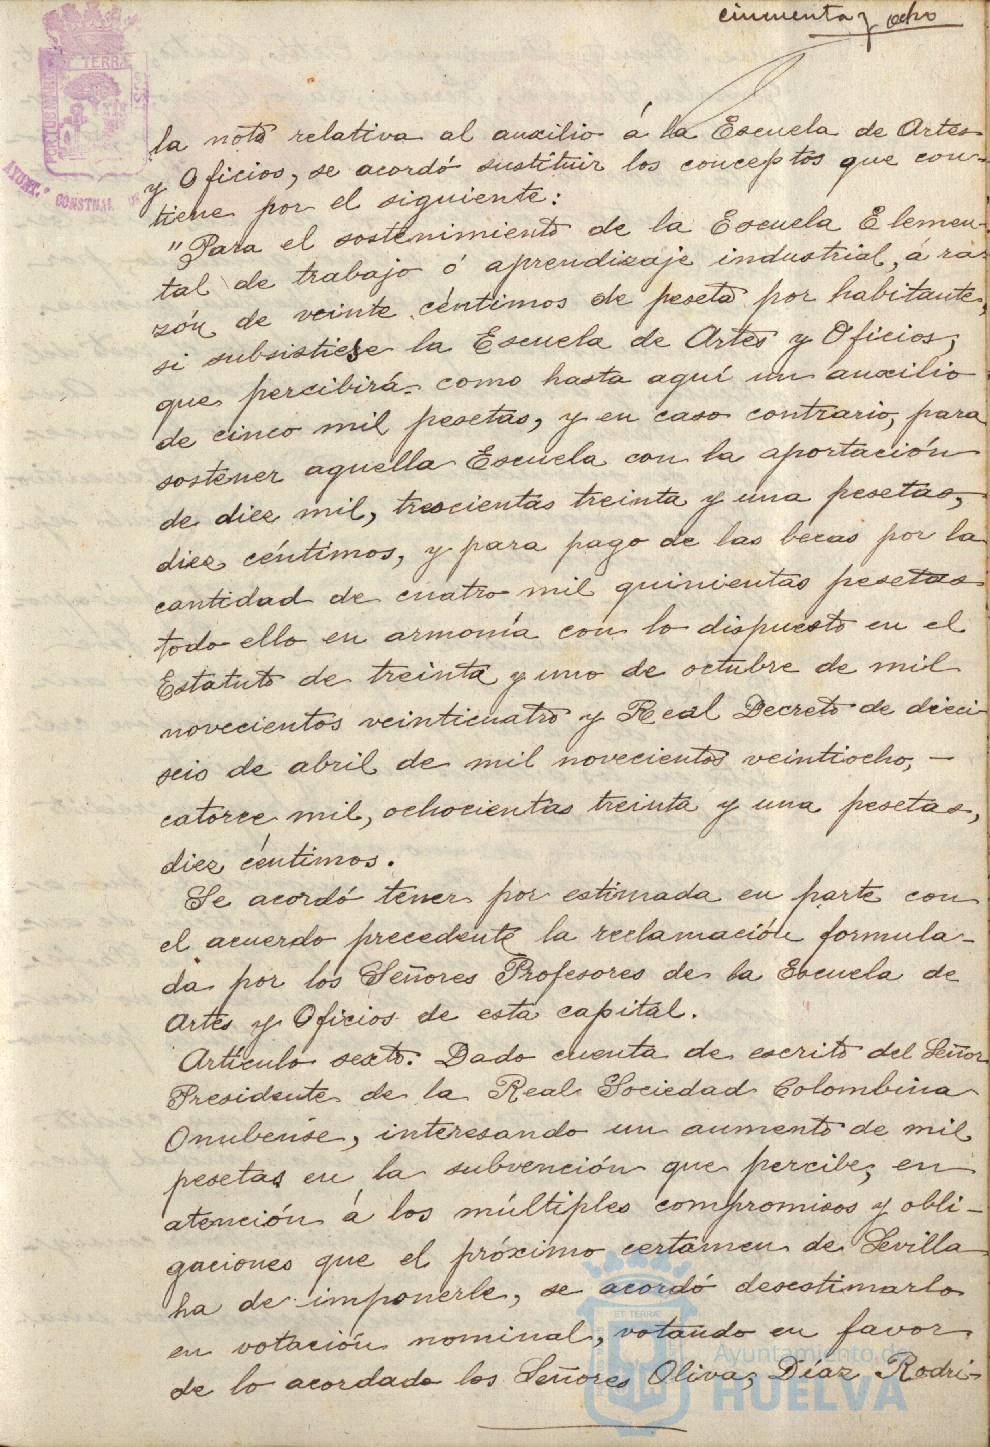 cincuenta y ocho
la nota relativa al auxilio á la Escuela de Artes
y Oficios, se acordó sustituir los conceptos que con-
tiene por el siguiente:
"Para el sostenimiento de la Escuela Elemen-
tal de trabajo ó aprendizaje industrial, á ra-
zón de veinte céntimos de peseta por habitante,
si subsistiese la Escuela de Artes y Oficios,
que percibirá como hasta aquí un auxilio
de cinco mil pesetas, y en caso contrario, para
sostener aquella Escuela con la aportación
de diez mil, trescientas treinta y una pesetas,
diez céntimos, y para pago de las becas por la
cantidad de cuatro mil quinientas pesetas
todo ello en armonía con lo dispuesto en el
Estatuto de treinta y uno de octubre de mil
novecientos veinticuatro y Real Decreto de dieci
seis de abril de mil novecientos veintiocho, —
catorce mil, ochocientas treinta y una pesetas,
diez céntimos.
Se acordó tener por estimada en parte con
el acuerdo precedente la reclamación formula-
da por los Señores Profesores de la Escuela de
Artes y Oficios de esta capital.
Artículo sexto. Dado cuenta de escrito del Señor
Presidente de la Real Sociedad Colombina
Onubense, interesando un aumento de mil
pesetas en la subvención que percibe, en
atención á los múltiples compromisos y obli-
gaciones que el próximo certamen de Sevilla
ha de imponerle, se acordó desestimarlo
en votación nominal, votando en favor
de lo acordado los Señores Oliva, Díaz Rodri-
PORTUS MARIS
ET TERRÆ
CUST
AYUNT.º CONSTNAL
ET TERRÆ
Ayuntamiento de
HUELVA